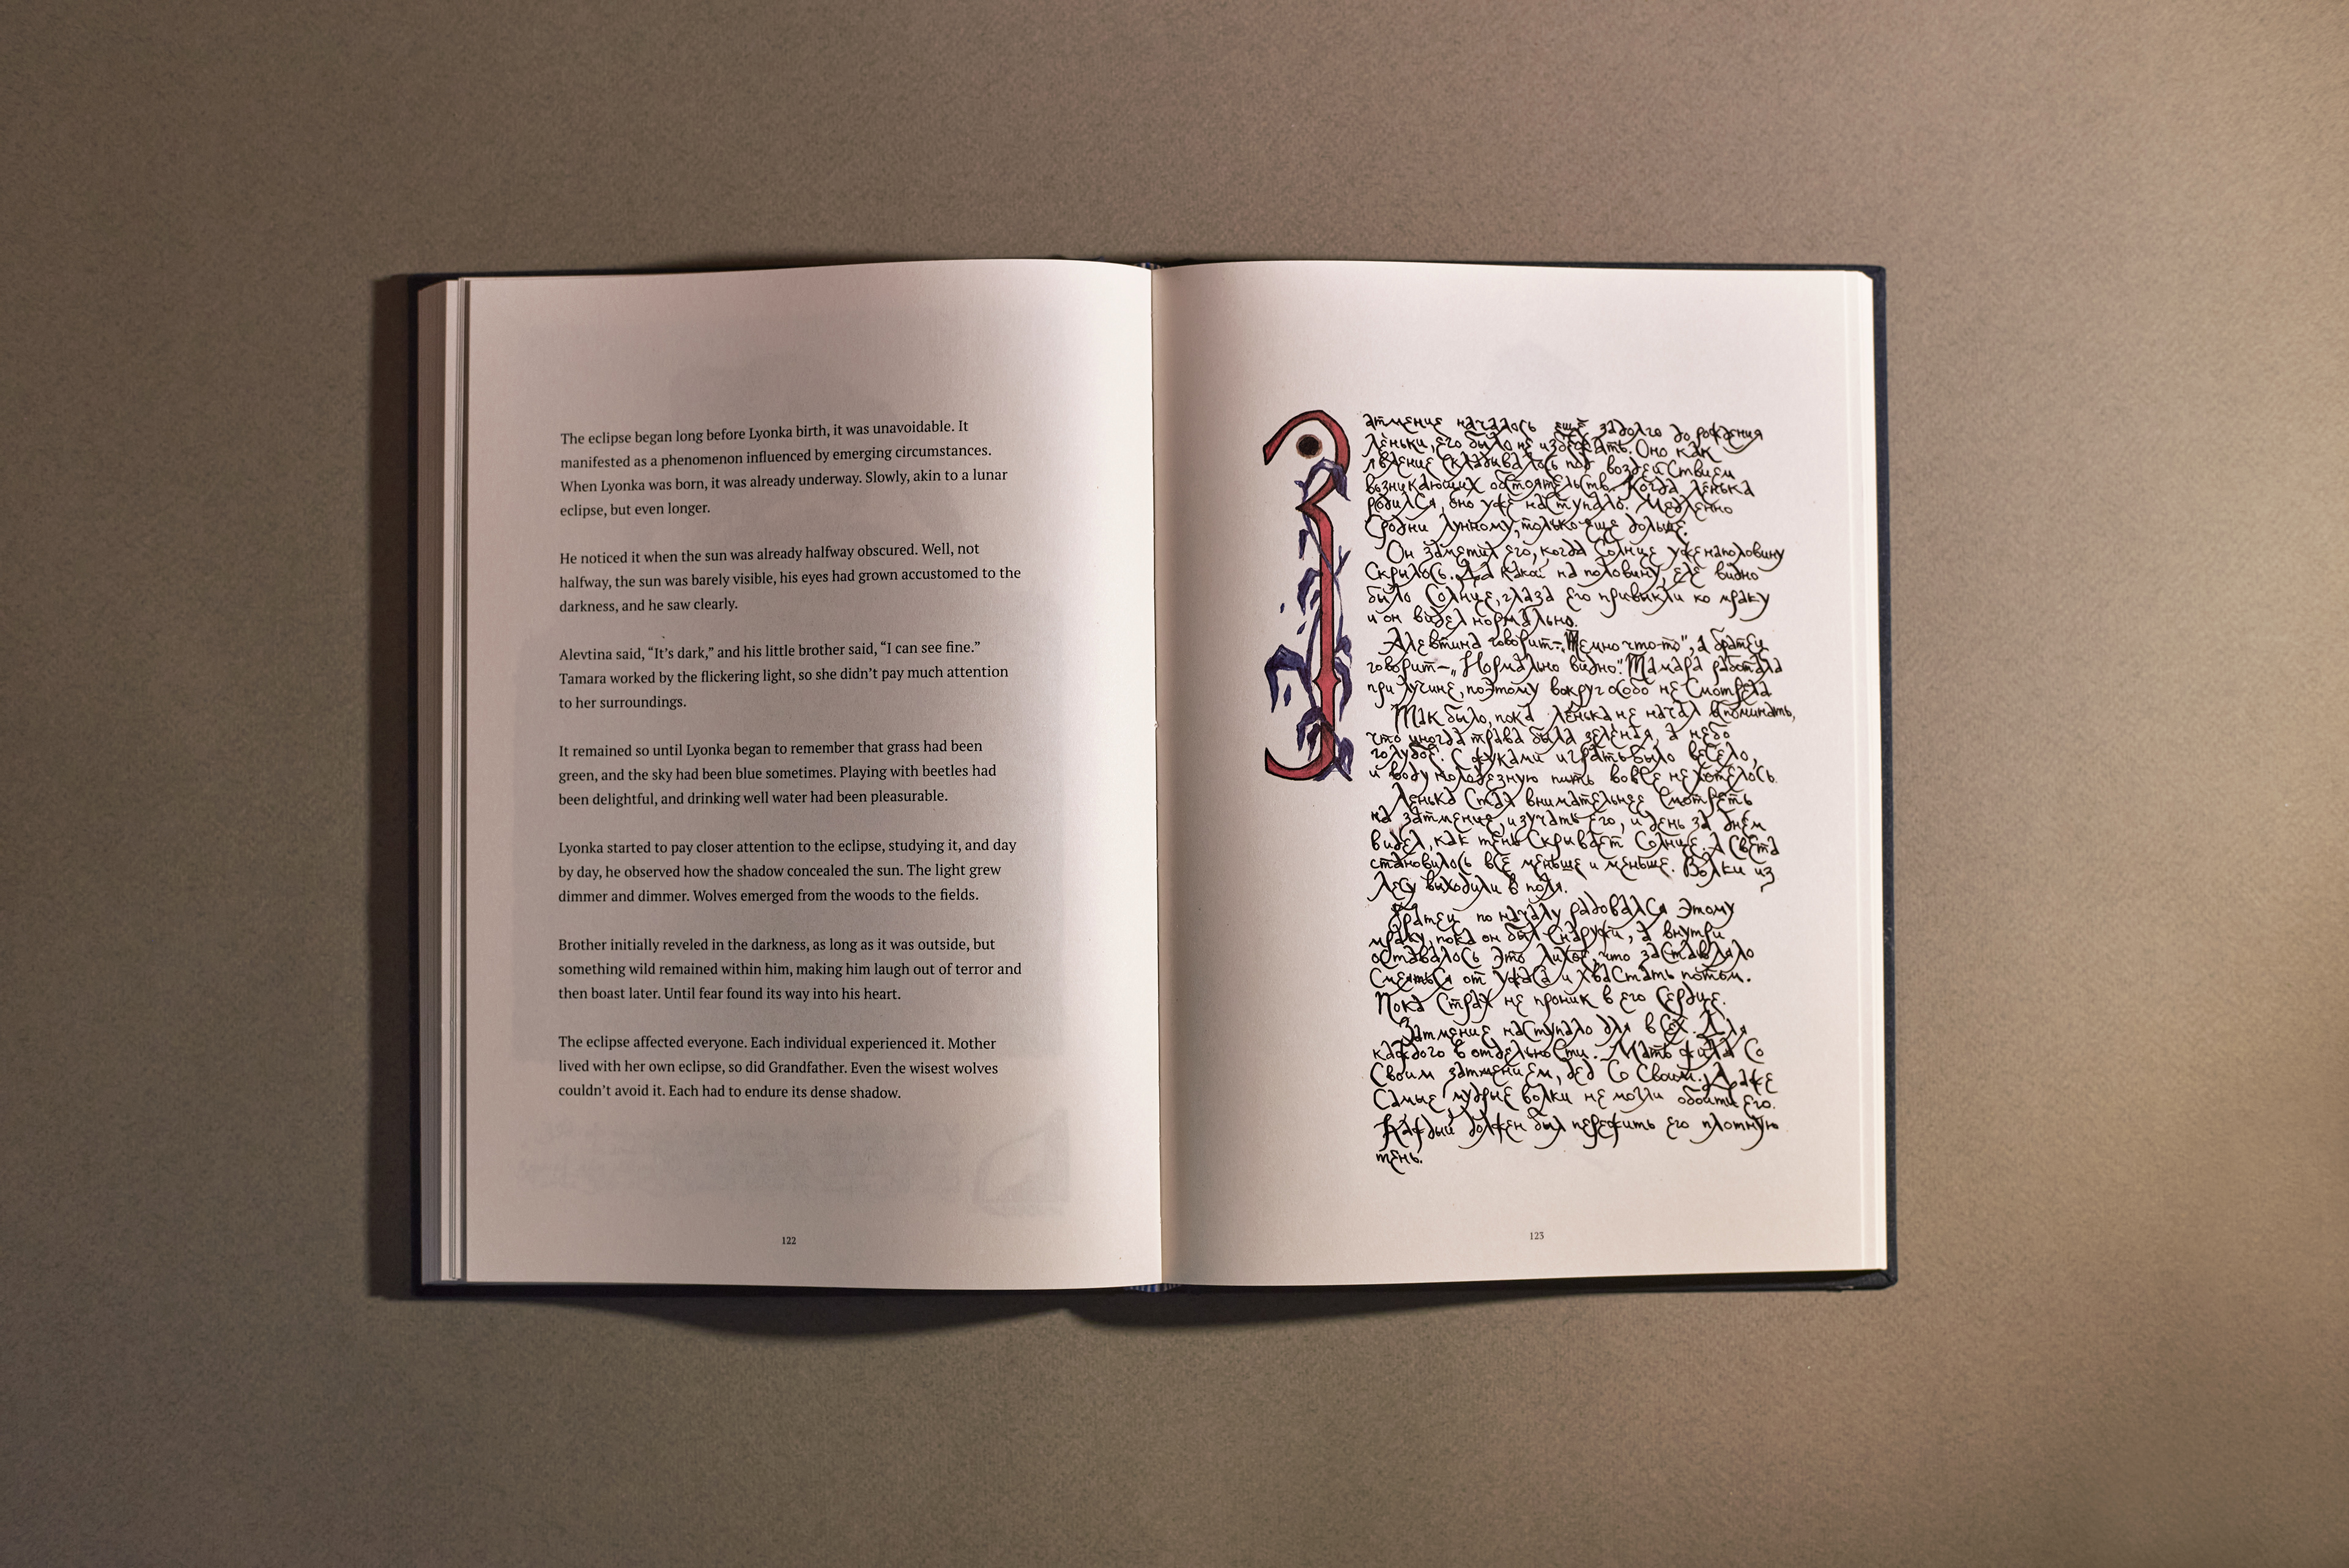 The eclipse began long before Lyonka birth, it was unavoidable. It
manifested as a phenomenon influenced by emerging circumstances.
When Lyonka was born, it was already underway. Slowly, akin to a lunar
eclipse, but even longer.
He noticed it when the sun was already halfway obscured. Well, not
halfway, the sun was barely visible, his eyes had grown accustomed to the
darkness, and he saw clearly.
Alevtina said, “It’s dark,” and his little brother said, “I can see fine.”
Tamara worked by the flickering light, so she didn’t pay much attention
to her surroundings.
It remained so until Lyonka began to remember that grass had been
green, and the sky had been blue sometimes. Playing with beetles had
been delightful, and drinking well water had been pleasurable.
Lyonka started to pay closer attention to the eclipse, studying it, and day
by day, he observed how the shadow concealed the sun. The light grew
dimmer and dimmer. Wolves emerged from the woods to the fields.
Brother initially reveled in the darkness, as long as it was outside, but
something wild remained within him, making him laugh out of terror and
then boast later. Until fear found its way into his heart.
The eclipse affected everyone. Each individual experienced it. Mother
lived with her own eclipse, so did Grandfather. Even the wisest wolves
couldn’t avoid it. Each had to endure its dense shadow.
122
Затмение началось еще задолго до рождения
Лёньки, его было не избежать. Оно как
явление складывалось под воздействием
возникающих обстоятельств. Когда Лёнька
родился, оно уже наступало. Медленно
Сродни лунному, только еще дольше.
Он заметил его, когда Солнце уже наполовину
Скрылось. Да какой на половину, еле видно
было Солнце, глаза его привыкли ко мраку
и он видел нормально.
Алевтина говорит – „Темно что-то", а братец
говорит – „Нормально видно". Тамара работала
при лучине, поэтому вокруг особо не Смотрела
Так было, пока Лёнька не начал вспоминать,
что иногда трава была зеленая, а небо
голубое. С жуками играть было весело,
и воду колодезную пить вовсе не хотелось.
Лёнька Стал внимательнее Смотреть
на затмение, изучать его, и день за днем
видел, как тень Скрывает Солнце. А Света
становилось все меньше и меньше. Волки из
лесу выходили в поля.
Братец по началу радовался этому
мраку, пока он был Снаружи, а внутри
оставалось это лихое, что заставляло
Смеяться от ужаса и хвастать потом.
Пока Страх не проник в его Сердце.
Затмение наступало для всех. Для
каждого в отдельности. Мать жила Со
Своим затмением, дед Со Своим. Даже
Самые мудрые волки не могли обойти его.
Каждый должен был пережить его плотную
тень.
123